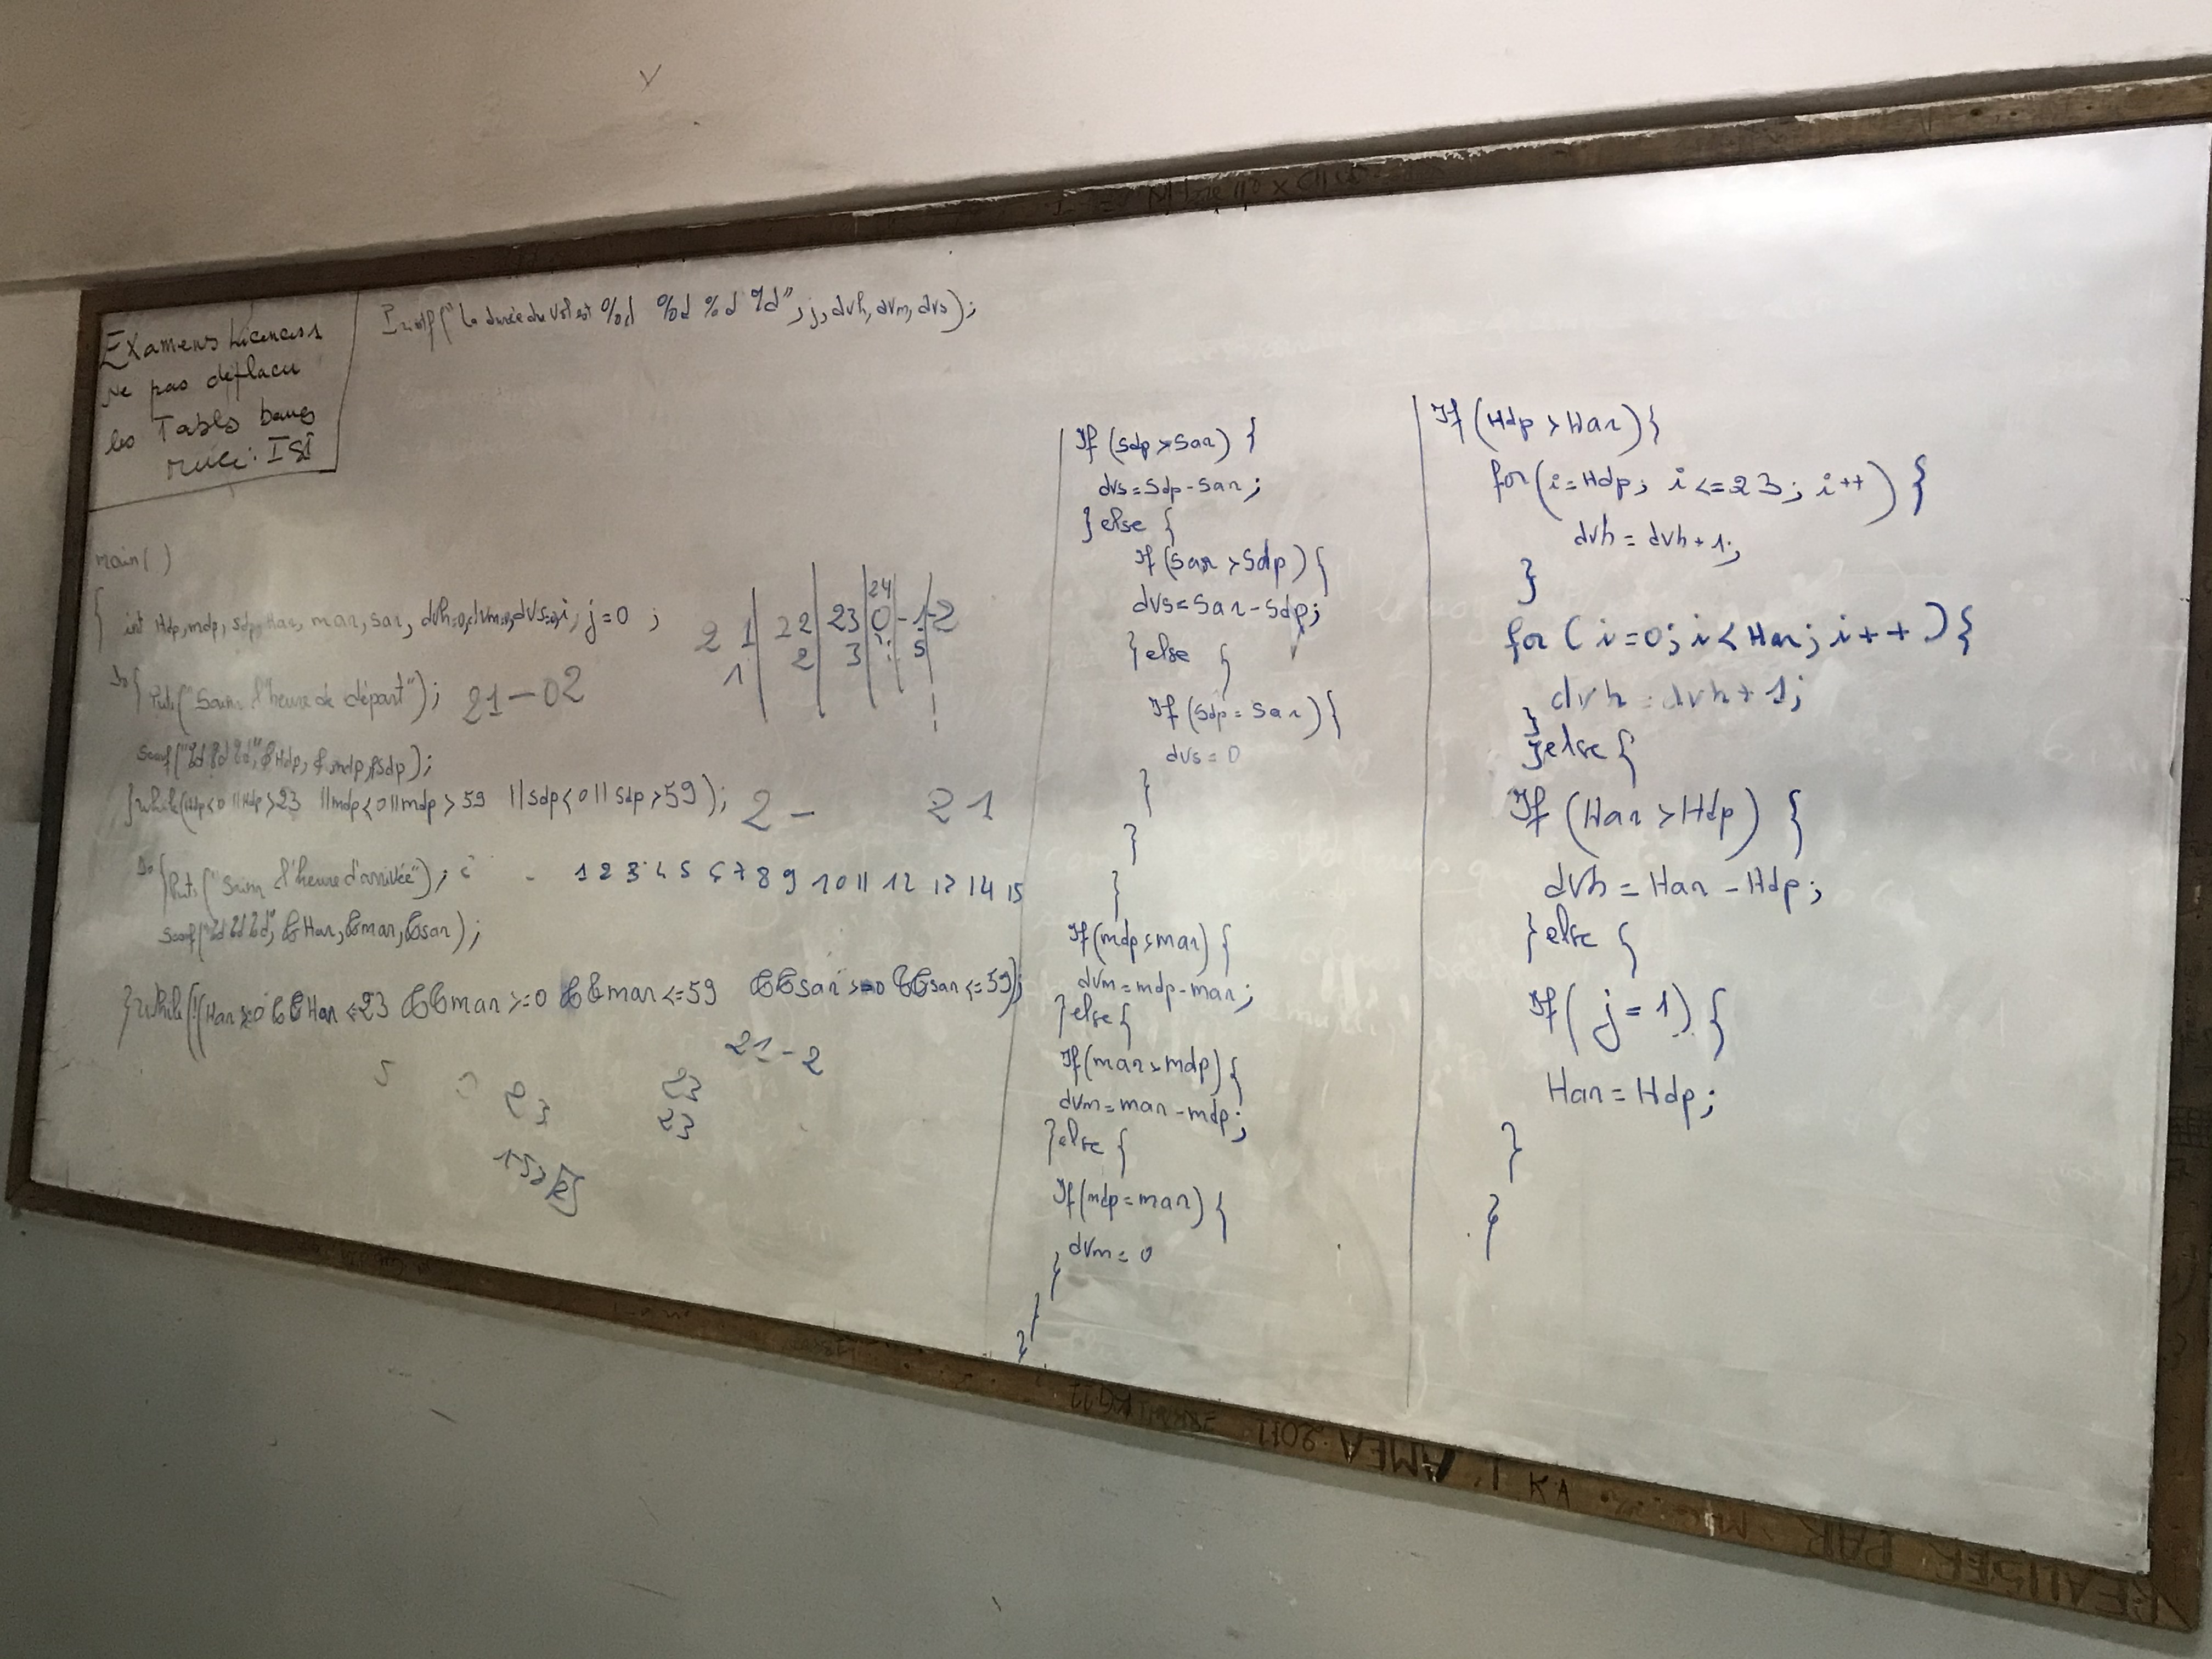 Examens Licences1
Ne pas déplacer
les Tables bancs
merci: ISI
Printf("la durée du vol est %d %d %d %d", j, dvh, dvm, dvs);
main()
{ int Hdp, mdp, sdp, Har, mar, sar, dvh=0, dvm=0, dvs=0, i, j=0 ;
Do{ Puts("Saisir l'heure de départ");
21-02
Scanf("%d %d %d", &Hdp, &mdp, &sdp);
}while(Hdp<0 || Hdp>23 || mdp<0 || mdp>59 || sdp<0 || sdp>59);
2 - 21
Do{ Puts("Saisir l'heure d'arrivée");
1 2 3 4 5 6 7 8 9 10 11 12 13 14 15
Scanf("%d %d %d", &Har, &mar, &sar);
}while(!(Har>=0 && Har<=23 && mar>=0 && mar<=59 && sar>=0 && sar<=59);
21-2
5
23
23
23
24
21 22 23 0 -1 -2
1 2 3 5
If (sdp>sar) {
dvs=sdp-sar;
} else {
If (sar>sdp) {
dvs=sar-sdp;
} else {
If (sdp=sar) {
dvs=0
}
}
}
If(mdp>mar) {
dvm=mdp-mar;
}else{
If(mar>mdp){
dvm=mar-mdp;
}else {
If(mdp=mar) {
dvm=0
}
}
}
If (Hdp>Har){
for(i=Hdp; i<=23; i++) {
dvh=dvh+1;
}
for (i=0; i<Har; i++){
dvh=dvh+1;
}
}else {
If (Har>Hdp) {
dvh=Har-Hdp;
} else {
If( j=1) {
Har=Hdp;
}
}
REALISER PAR
L'AMEA 2011